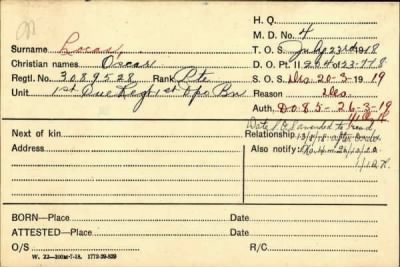 H. Q.
M. D. No. 4
Surname Lucas T. O. S. July 23rd 1918
Christian names Oscar D. O. Pt. II 204 of 23-7-18
Regtl. No. 3089528 Rank Pte S. O. S. Des. 20-3-1919
Unit 1st Que Regt 1st Dpo Bn Reason Des.
Auth. D.O. 85-26-3-19
Date S.O.S. amended to read
Next of kin Relationship 13/8/18
Address Also notify:
BORN—Place Date
ATTESTED—Place Date
O/S R/C
W. 22—200M-7-18. 1772-39-839